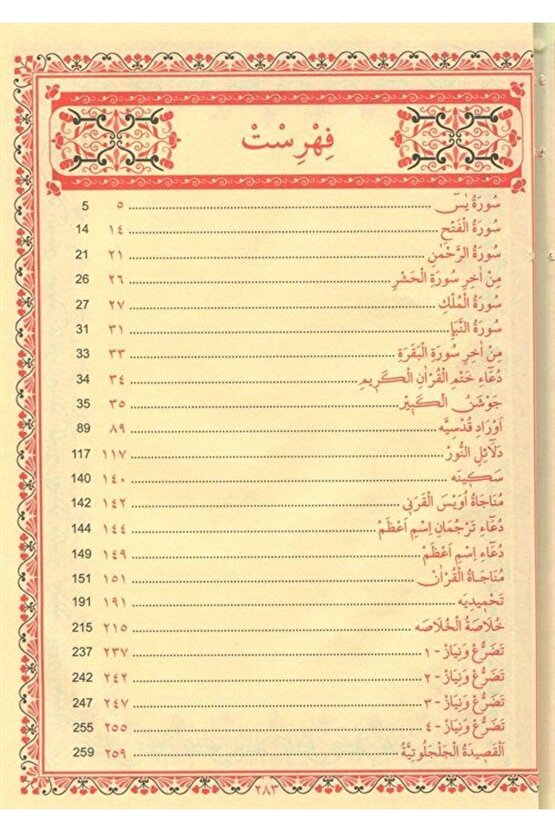 فِهْرِسْتْ
سُورَةُ يٰسٓ ........ ٥ 5
سُورَةُ الْفَتْحِ ........ ١٤ 14
سُورَةُ الرَّحْمٰنِ ........ ٢١ 21
مِنْ اٰخِرِ سُورَةِ الْحَشْرِ ........ ٢٦ 26
سُورَةُ الْمُلْكِ ........ ٢٧ 27
سُورَةُ النَّبَاِ ........ ٣١ 31
مِنْ اٰخِرِ سُورَةِ الْبَقَرَةِ ........ ٣٣ 33
دُعَٓاءِ خَتْمِ الْقُرْاٰنِ الْكَرِيمِ ........ ٣٤ 34
جَوْشَنُ الْكَبِيْر ........ ٣٥ 35
اَوْرَادِ قُدْسِيَّه ........ ٨٩ 89
دَلَٓائِلِ النُّورْ ........ ١١٧ 117
سَكِينَه ........ ١٤٠ 140
مُنَاجَاةُ اُوَيْسَ الْقَرَنِى ........ ١٤٢ 142
دُعَٓاءِ تَرْجُمَانِ اِسْمِ اَعْظَمْ ........ ١٤٤ 144
دُعَٓاءِ اِسْمِ اَعْظَمْ ........ ١٤٩ 149
مُنَاجَاةُ الْقُرْاٰنْ ........ ١٥١ 151
تَحْمِيدِيَه ........ ١٩١ 191
خُلَاصَةُ الْخُلَاصَه ........ ٢١٥ 215
تَضَرُّعْ وَنِيَازْ - ١ ........ ٢٣٧ 237
تَضَرُّعْ وَنِيَازْ - ٢ ........ ٢٤٢ 242
تَضَرُّعْ وَنِيَازْ - ٣ ........ ٢٤٧ 247
تَضَرُّعْ وَنِيَازْ - ٤ ........ ٢٥٥ 255
اَلْقَصِيدَةُ الْجَلْجَلُوتِيَّةُ ........ ٢٥٩ 259
٢٨٣